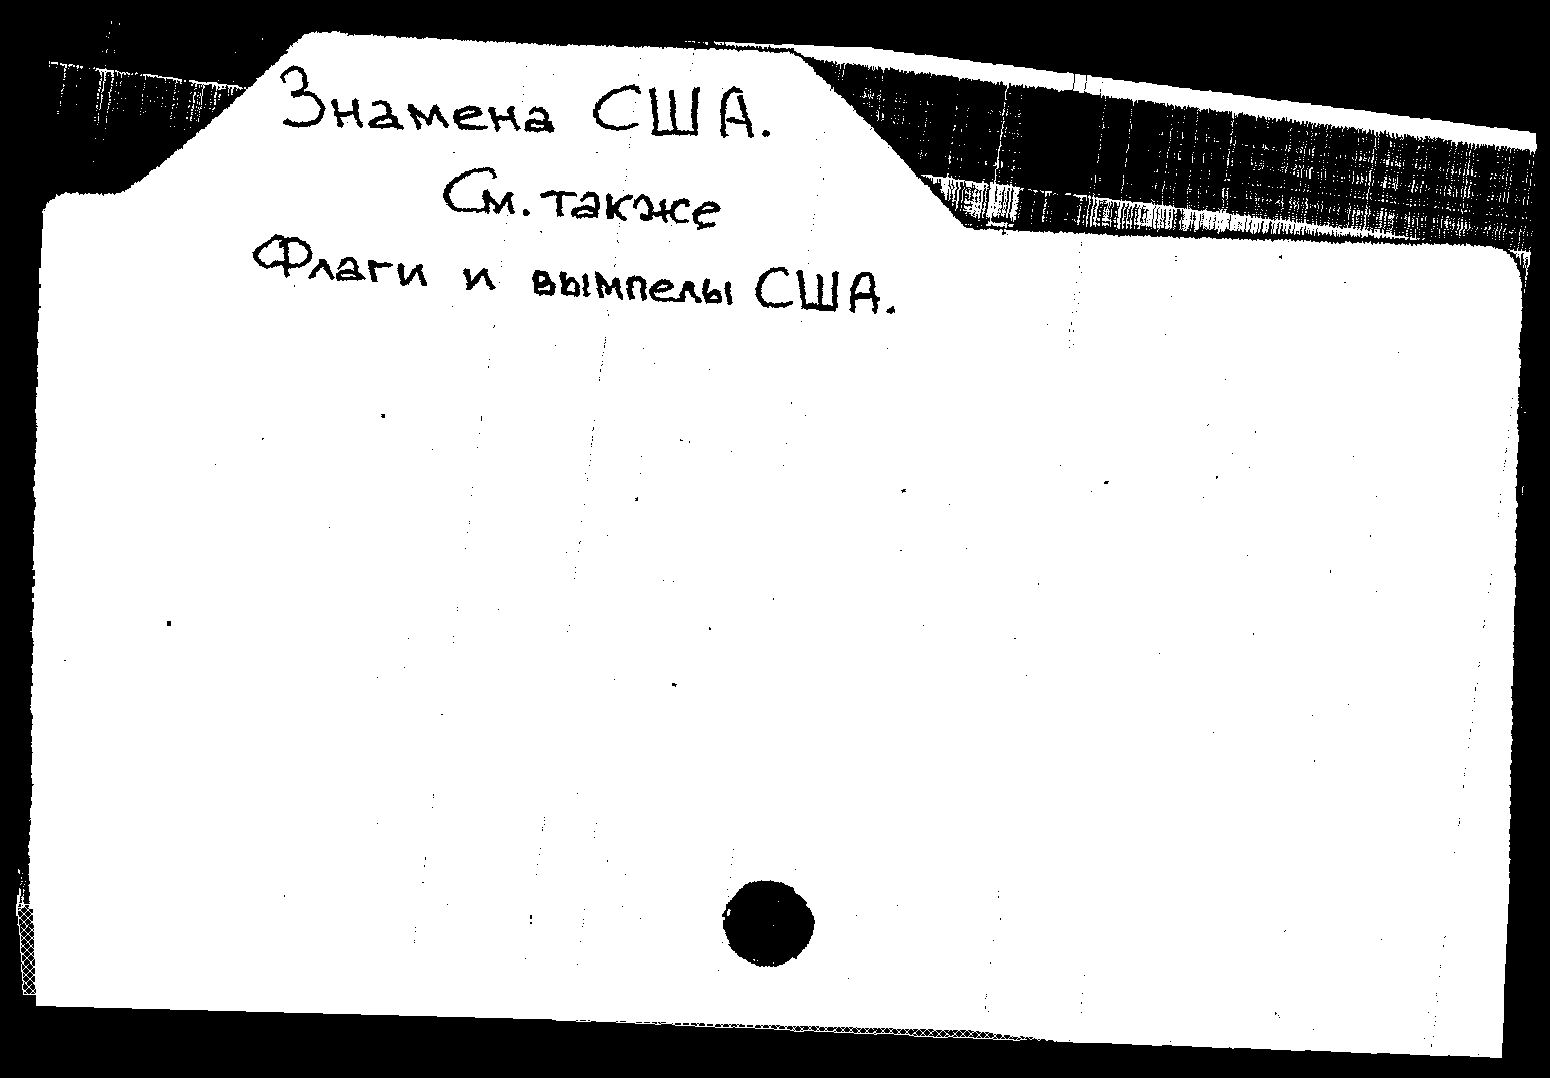 Знамена США.
См. также
Флаги и вымпелы США.